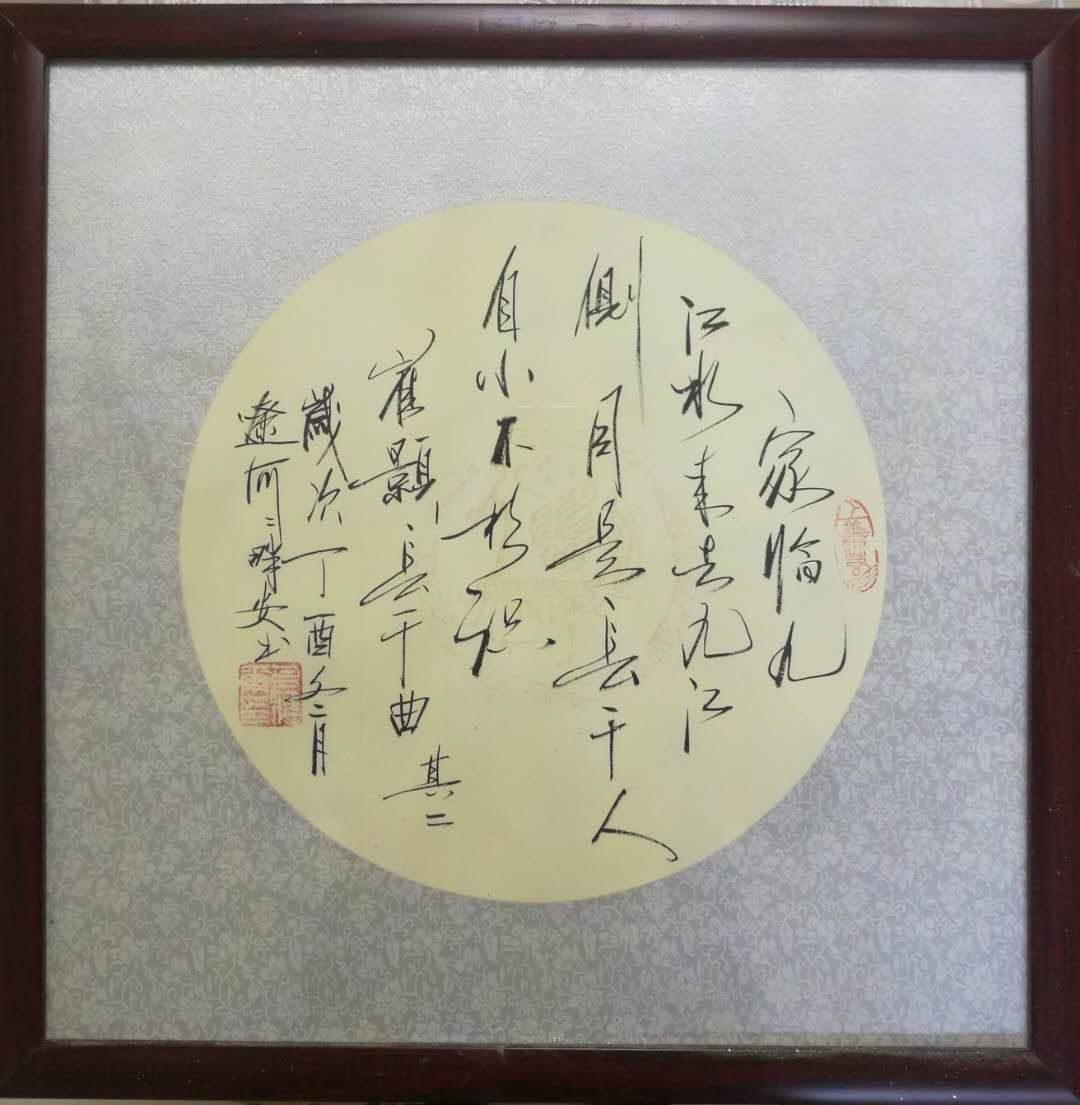 家临九
江水来去九江
侧同是长干人
自小不相识
崔颢长干曲其二
岁次丁酉冬二月
辽河之畔安书